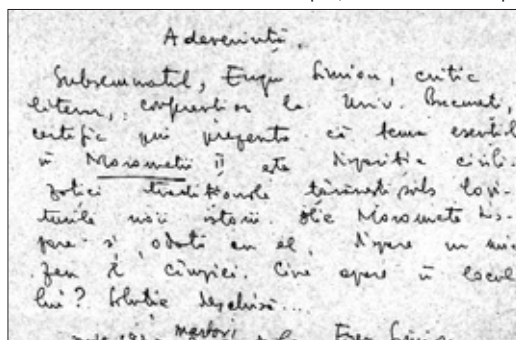 Adeverință.
Subsemnatul, Eugen Simion, critic
literar, conferențiar la Univ. București,
certific prin prezenta că tema esențială
în Moromeții II este dispariția civili-
zației tradiționale țărănești sub lovi-
turile noii istorii. Ilie Moromete dis-
pare și, odată cu el, dispare un
de cîmpiei. Cine apare în locul
lui? Soluție deschisă...
martori
Eugen Simion